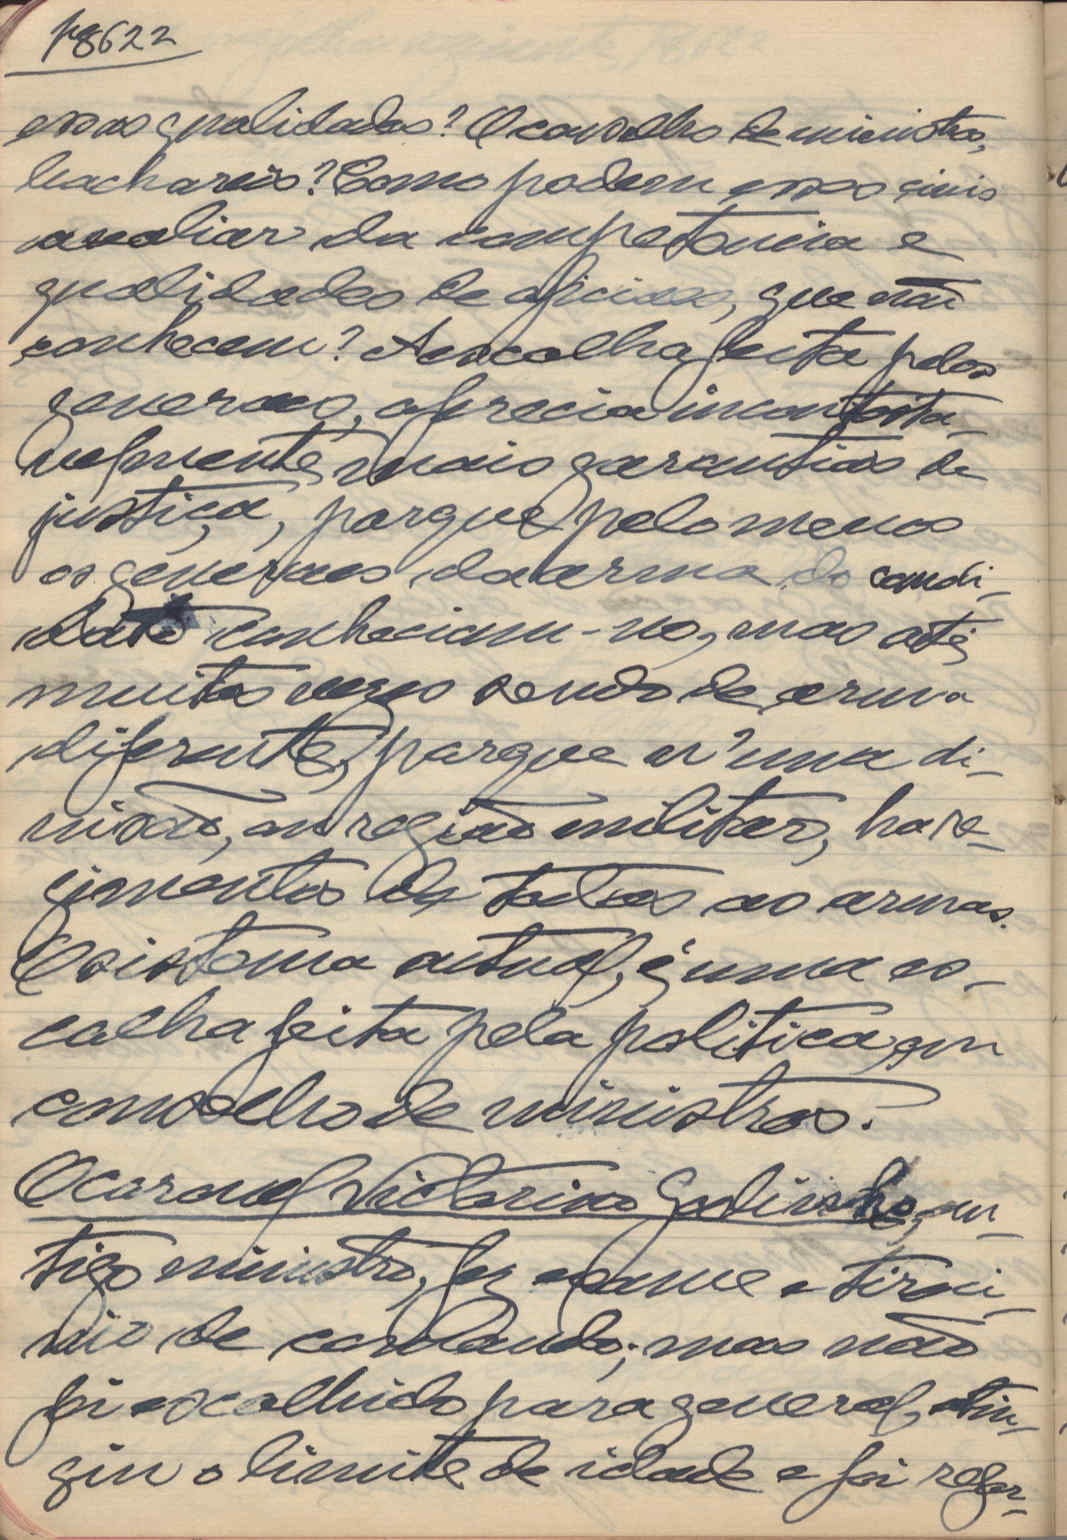 p8622
essas qualidades? O conselho de ministros,
bachareis? Como podem esses civis
avaliar da competencia e
qualidades de oficiaes, que não
conhecem? A escolha feita pelos
generaes, oferecia incontesta-
velmente, mais garantias de
justiça, porque pelo menos
os generaes da arma do candi-
dato conheciam-no, mas até,
muitas vezes sendo de arma
diferente, porque n'uma di-
visão, ou região militar, ha re-
gimentos de todas as armas.
O sistema actual, é uma es-
colha feita pela politica, em
conselho de ministros.
O coronel Victorino Godinho, an-
tigo ministro, fez exame e tiroci-
nio de comando; mas não
foi escolhido para general, atin-
giu o limite de idade e foi refor-